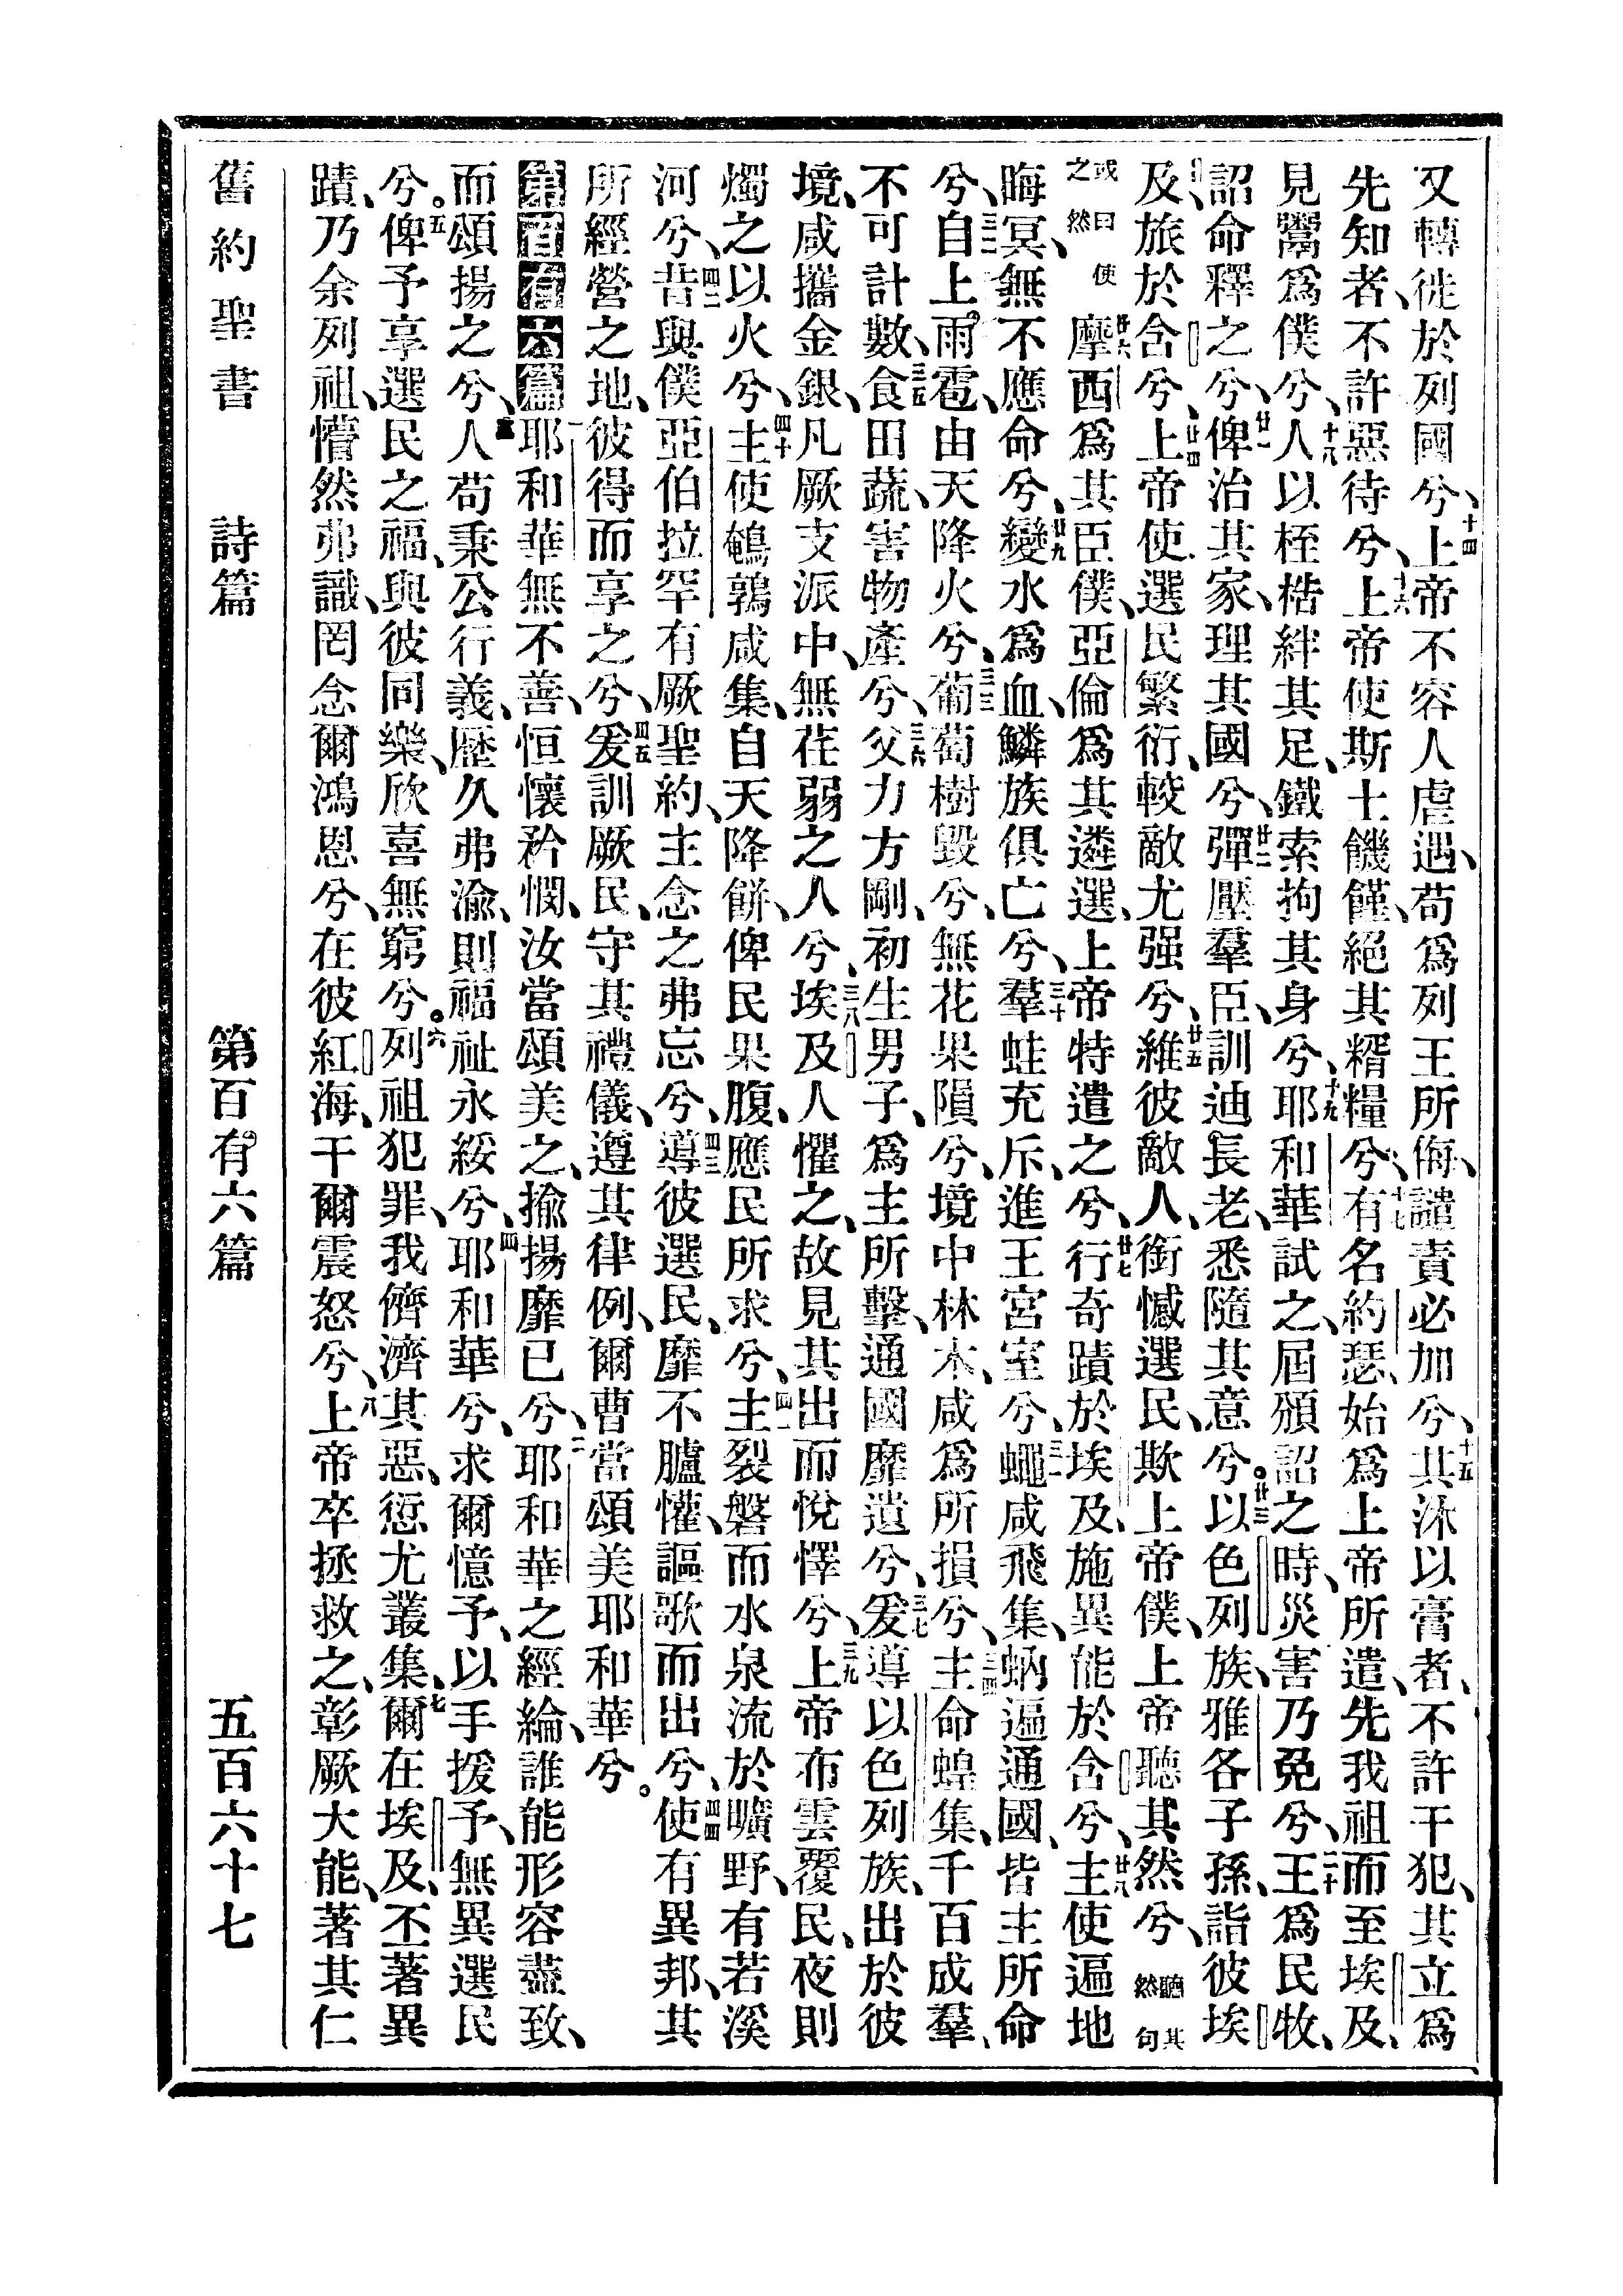 又轉徙於列國兮、十四上帝不容人虐遇、苟爲列王所侮、譴責必加兮、十五其沐以膏者、不許干犯、其立爲
先知者、不許惡待兮、十六上帝使斯土饑饉、絕其糈糧兮、十七有名約瑟、始爲上帝所遣、先我祖而至埃及、
見鬻爲僕兮、十八人以桎梏絆其足、鐵索拘其身兮、十九耶和華試之、屆頒詔之時、災害乃免兮、二十王爲民牧、
詔命釋之兮、廿一俾治其家、理其國兮、廿二彈壓羣臣、訓迪長老、悉隨其意兮。廿三以色列族、雅各子孫、詣彼埃
及、旅於含兮、廿四上帝使選民繁衍、較敵尤强兮、廿五維彼敵人、銜憾選民、欺上帝僕、上帝聽其然兮、聽其然句
或曰使之然廿六摩西爲其臣僕、亞倫爲其遴選、上帝特遣之兮、廿七行奇蹟於埃及、施異能於含兮、廿八主使遍地
晦冥、無不應命兮、廿九變水爲血、鱗族俱亡兮、三十羣蛙充斥、進王宮室兮、三一蠅咸飛集、蚋遍通國、皆主所命
兮、三二自上雨雹、由天降火兮、三三葡萄樹毀兮、無花果隕兮、境中林木、咸爲所損兮、三四主命蝗集、千百成羣、
不可計數、三五食田蔬、害物產兮、三六父力方剛、初生男子、爲主所擊、通國靡遺兮、三七爰導以色列族、出於彼
境、咸攜金銀、凡厥支派中、無荏弱之人兮、三八埃及人懼之、故見其出而悅懌兮、三九上帝布雲覆民、夜則
燭之以火兮、四十主使鵪鶉咸集、自天降餅、俾民果腹、應民所求兮、四一主裂磐而水泉流於曠野、有若溪
河兮、四二昔與僕亞伯拉罕有厥聖約、主念之弗忘兮、四三導彼選民、靡不臚懽、謳歌而出兮、四四使有異邦、其
所經營之地、彼得而享之兮、四五爰訓厥民、守其禮儀、遵其律例、爾曹當頌美耶和華兮。
第百有六篇 一耶和華無不善、恒懷矜憫、汝當頌美之、揄揚靡已兮、二耶和華之經綸、誰能形容盡致、
而頌揚之兮、三人苟秉公行義、歷久弗渝、則福祉永綏兮、四耶和華兮、求爾憶予、以手援予、無異選民
兮。五俾予享選民之福、與彼同樂、欣喜無窮兮。六列祖犯罪、我儕濟其惡、愆尤叢集、七爾在埃及、丕著異
蹟、乃余列祖、懵然弗識、罔念爾鴻恩兮、在彼紅海、干爾震怒兮、八上帝卒拯救之、彰厥大能、著其仁
舊約聖書 詩篇 第百有六篇 五百六十七